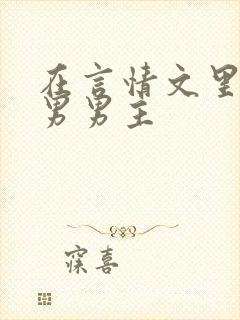 在言情文里
男男主
寐喜